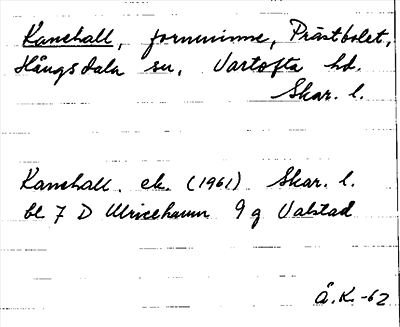 Kanehall, fornminne, Prästbolet,
Hångsdala sn, Vartofta hd.
Skar. l.
Kanehall. ek. (1961) Skar. l.
bl 7 D Ulricehamn 9 g Valstad
Å.K.-62